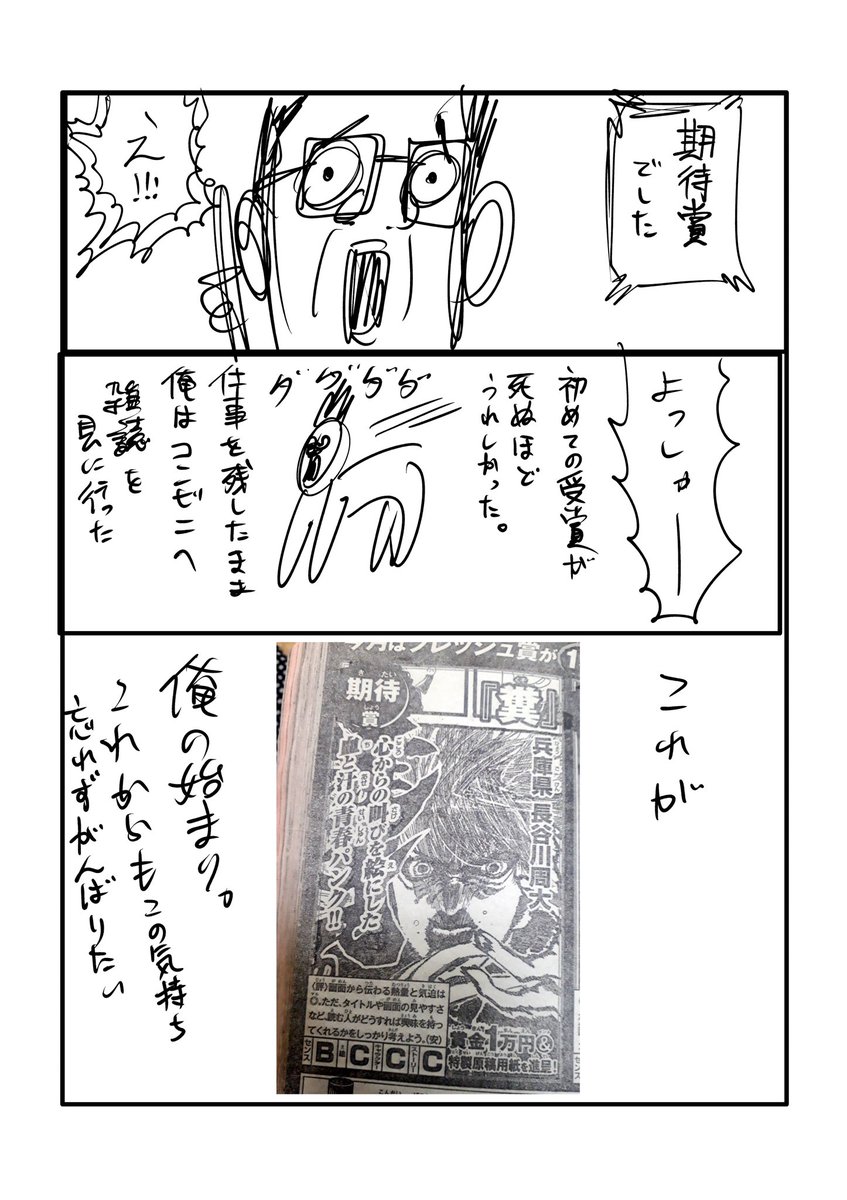 期待賞
でした
え!!!
よっしゃー
初めての受賞が
死ぬほど
うれしかった。
ダダダダ
仕事を残したまま
俺はコンビニへ
雑誌を
見に行った
これが
今月はフレッシュ賞が1
期待賞
きたい
しょう
『糞』
兵庫県 長谷川周大
心からの叫びを絵にした
血と汗の青春パンク!!
〈評〉画面から伝わる熱量と気迫は
◎。ただ、タイトルや画面の見やすさ
など、読む人がどうすれば興味を持っ
てくれるかをしっかり考えよう。(安)
センス B 絵 C キャラクター C ストーリー C
賞金1万円&
特製原稿用紙を進呈!
センス
俺の始まり。
これからもこの気持ち
忘れずがんばりたい